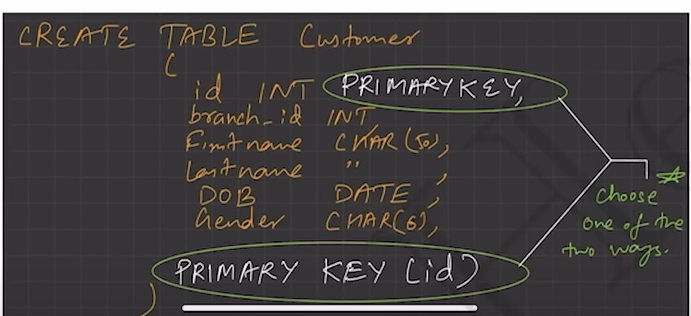 CREATE TABLE Customer
(
id INT PRIMARY KEY,
branch_id INT,
Firstname CHAR(50),
Lastname " ,
DOB DATE,
Gender CHAR(6),
PRIMARY KEY (id)
)
Choose
one of the
two ways.